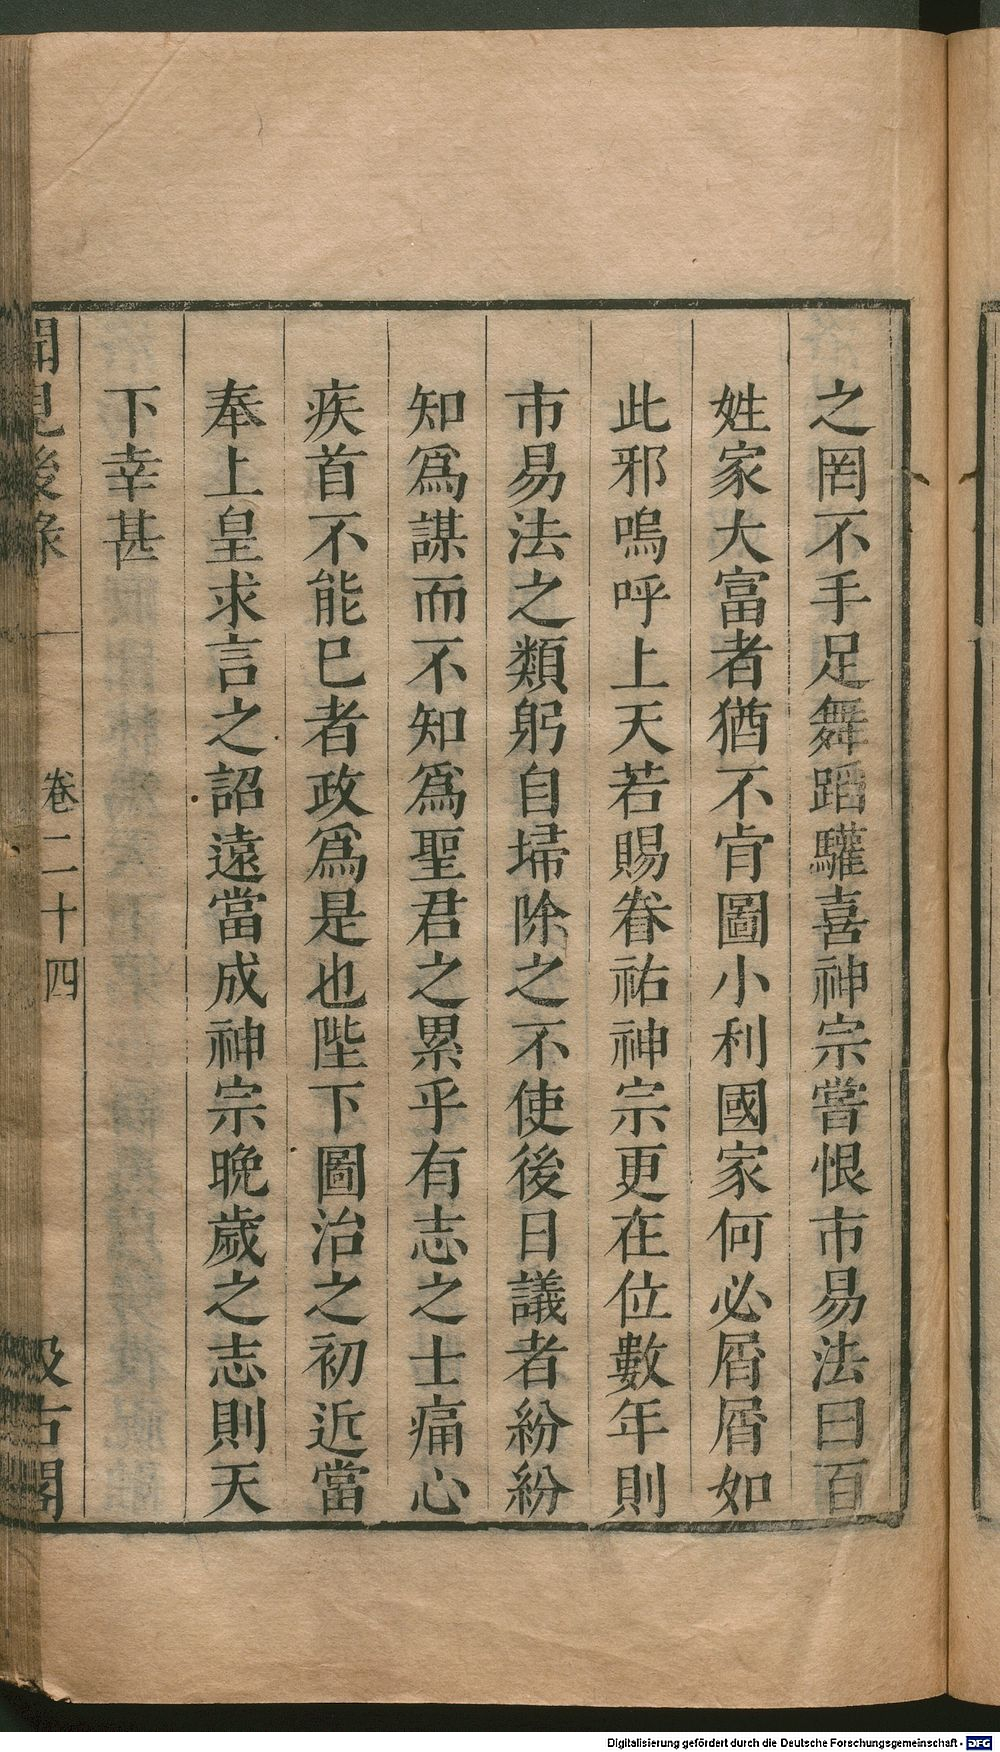 之罔不手足舞蹈驩喜神宗嘗恨市易法曰百
姓家大富者猶不肯圖小利國家何必屑屑如
此邪嗚呼上天若賜眷祐神宗更在位數年則
市易法之類躬自埽除之不使後日議者紛紛
知爲謀而不知爲聖君之累乎有志之士痛心
疾首不能已者政爲是也陛下圖治之初近當
奉上皇求言之詔遠當成神宗晚歲之志則天
下幸甚
聞見後錄 卷二十四 汲古閣
Digitalisierung gefördert durch die Deutsche Forschungsgemeinschaft - DFG